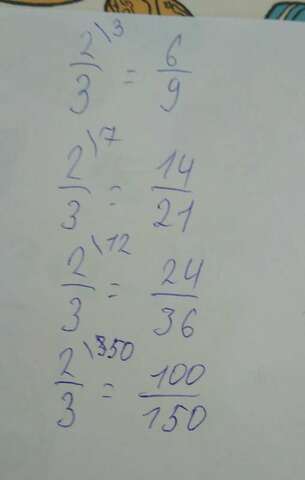 2\3/3 = 6/9
2\7/3 = 14/21
2\12/3 = 24/36
2\50/3 = 100/150